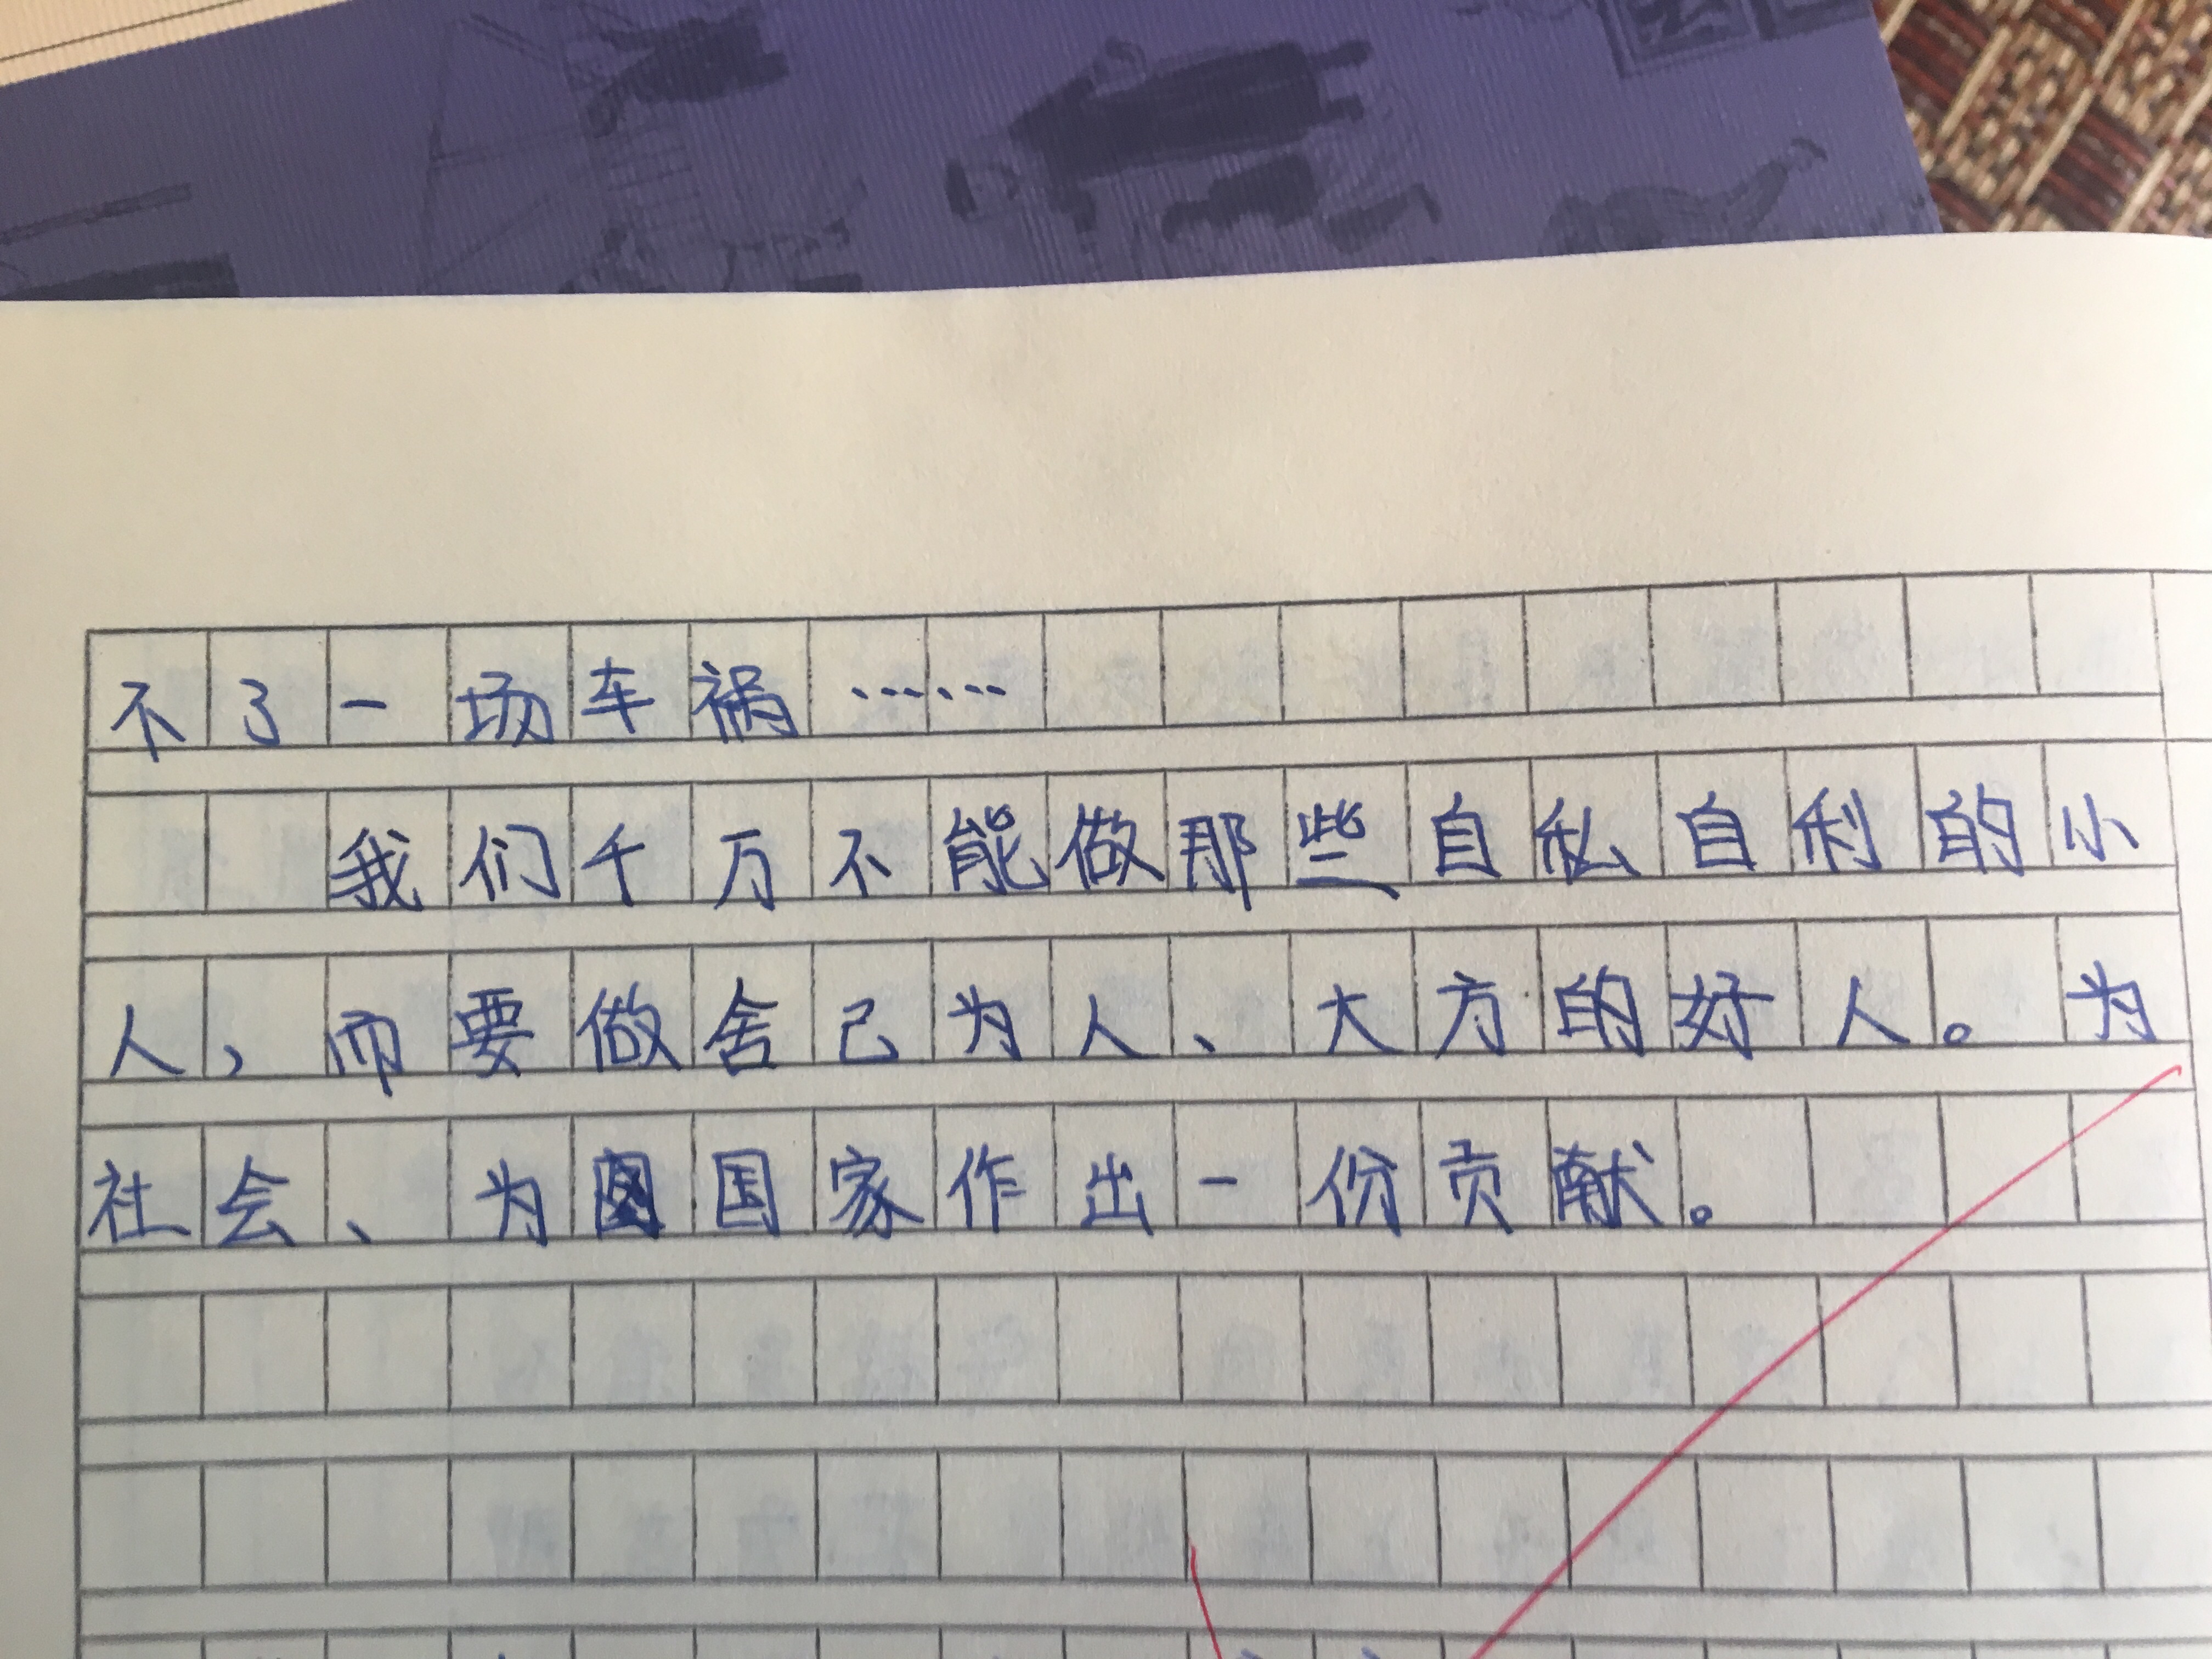 不了一场车祸……
我们千万不能做那些自私自利的小
人，而要做舍己为人、大方的好人。为
社会、为国家作出一份贡献。